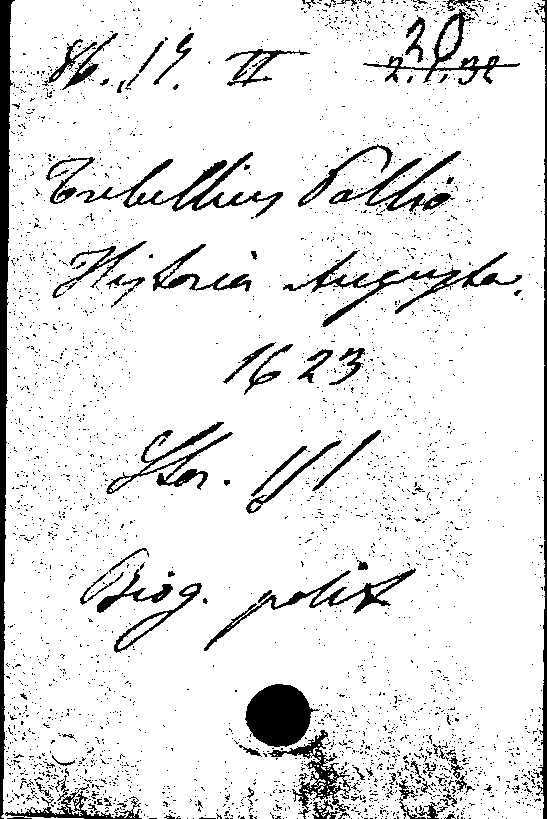 86.19. II 20
2.1.32
Trebellius Pollio
Historia Augusta.
1623
Biog. polit